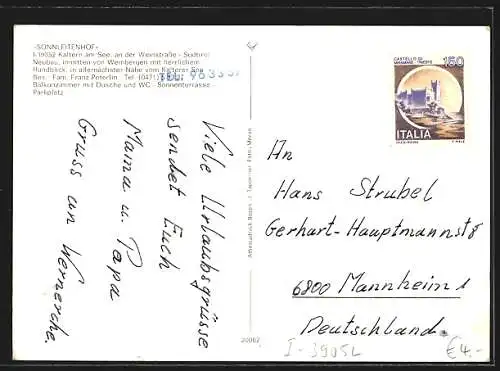 »SONNLEITENHOF«
I-39052 Kaltern am See, an der Weinstraße - Südtirol
Neubau, inmitten von Weinbergen mit herrlichem
Rundblick, in allernächster Nähe vom Kalterer See
Bes. Fam. Franz Peterlin Tel. (0471)
TEL. 963337
Balkonzimmer mit Dusche und WC - Sonnenterrasse -
Parkplatz
Viele Urlaubsgrüsse
sendet Euch
Mama u. Papa
Gruss an Wernerche.
20062
CASTELLO DI
MIRAMARE - TRIESTE
150
ITALIA
An
Hans Strubel
Gerhart-Hauptmannstr 8
6800 Mannheim 1
Deutschland.
I-39052
€4.-